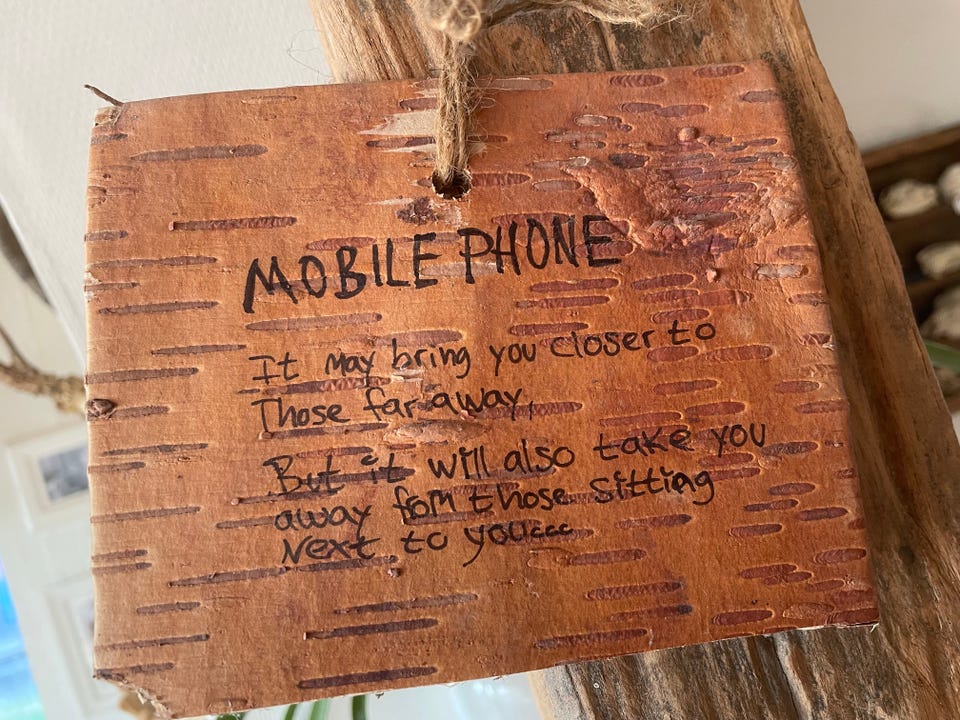 MOBILE PHONE
It may bring you closer to
Those far away,
But it will also take you
away from those sitting
Next to you...